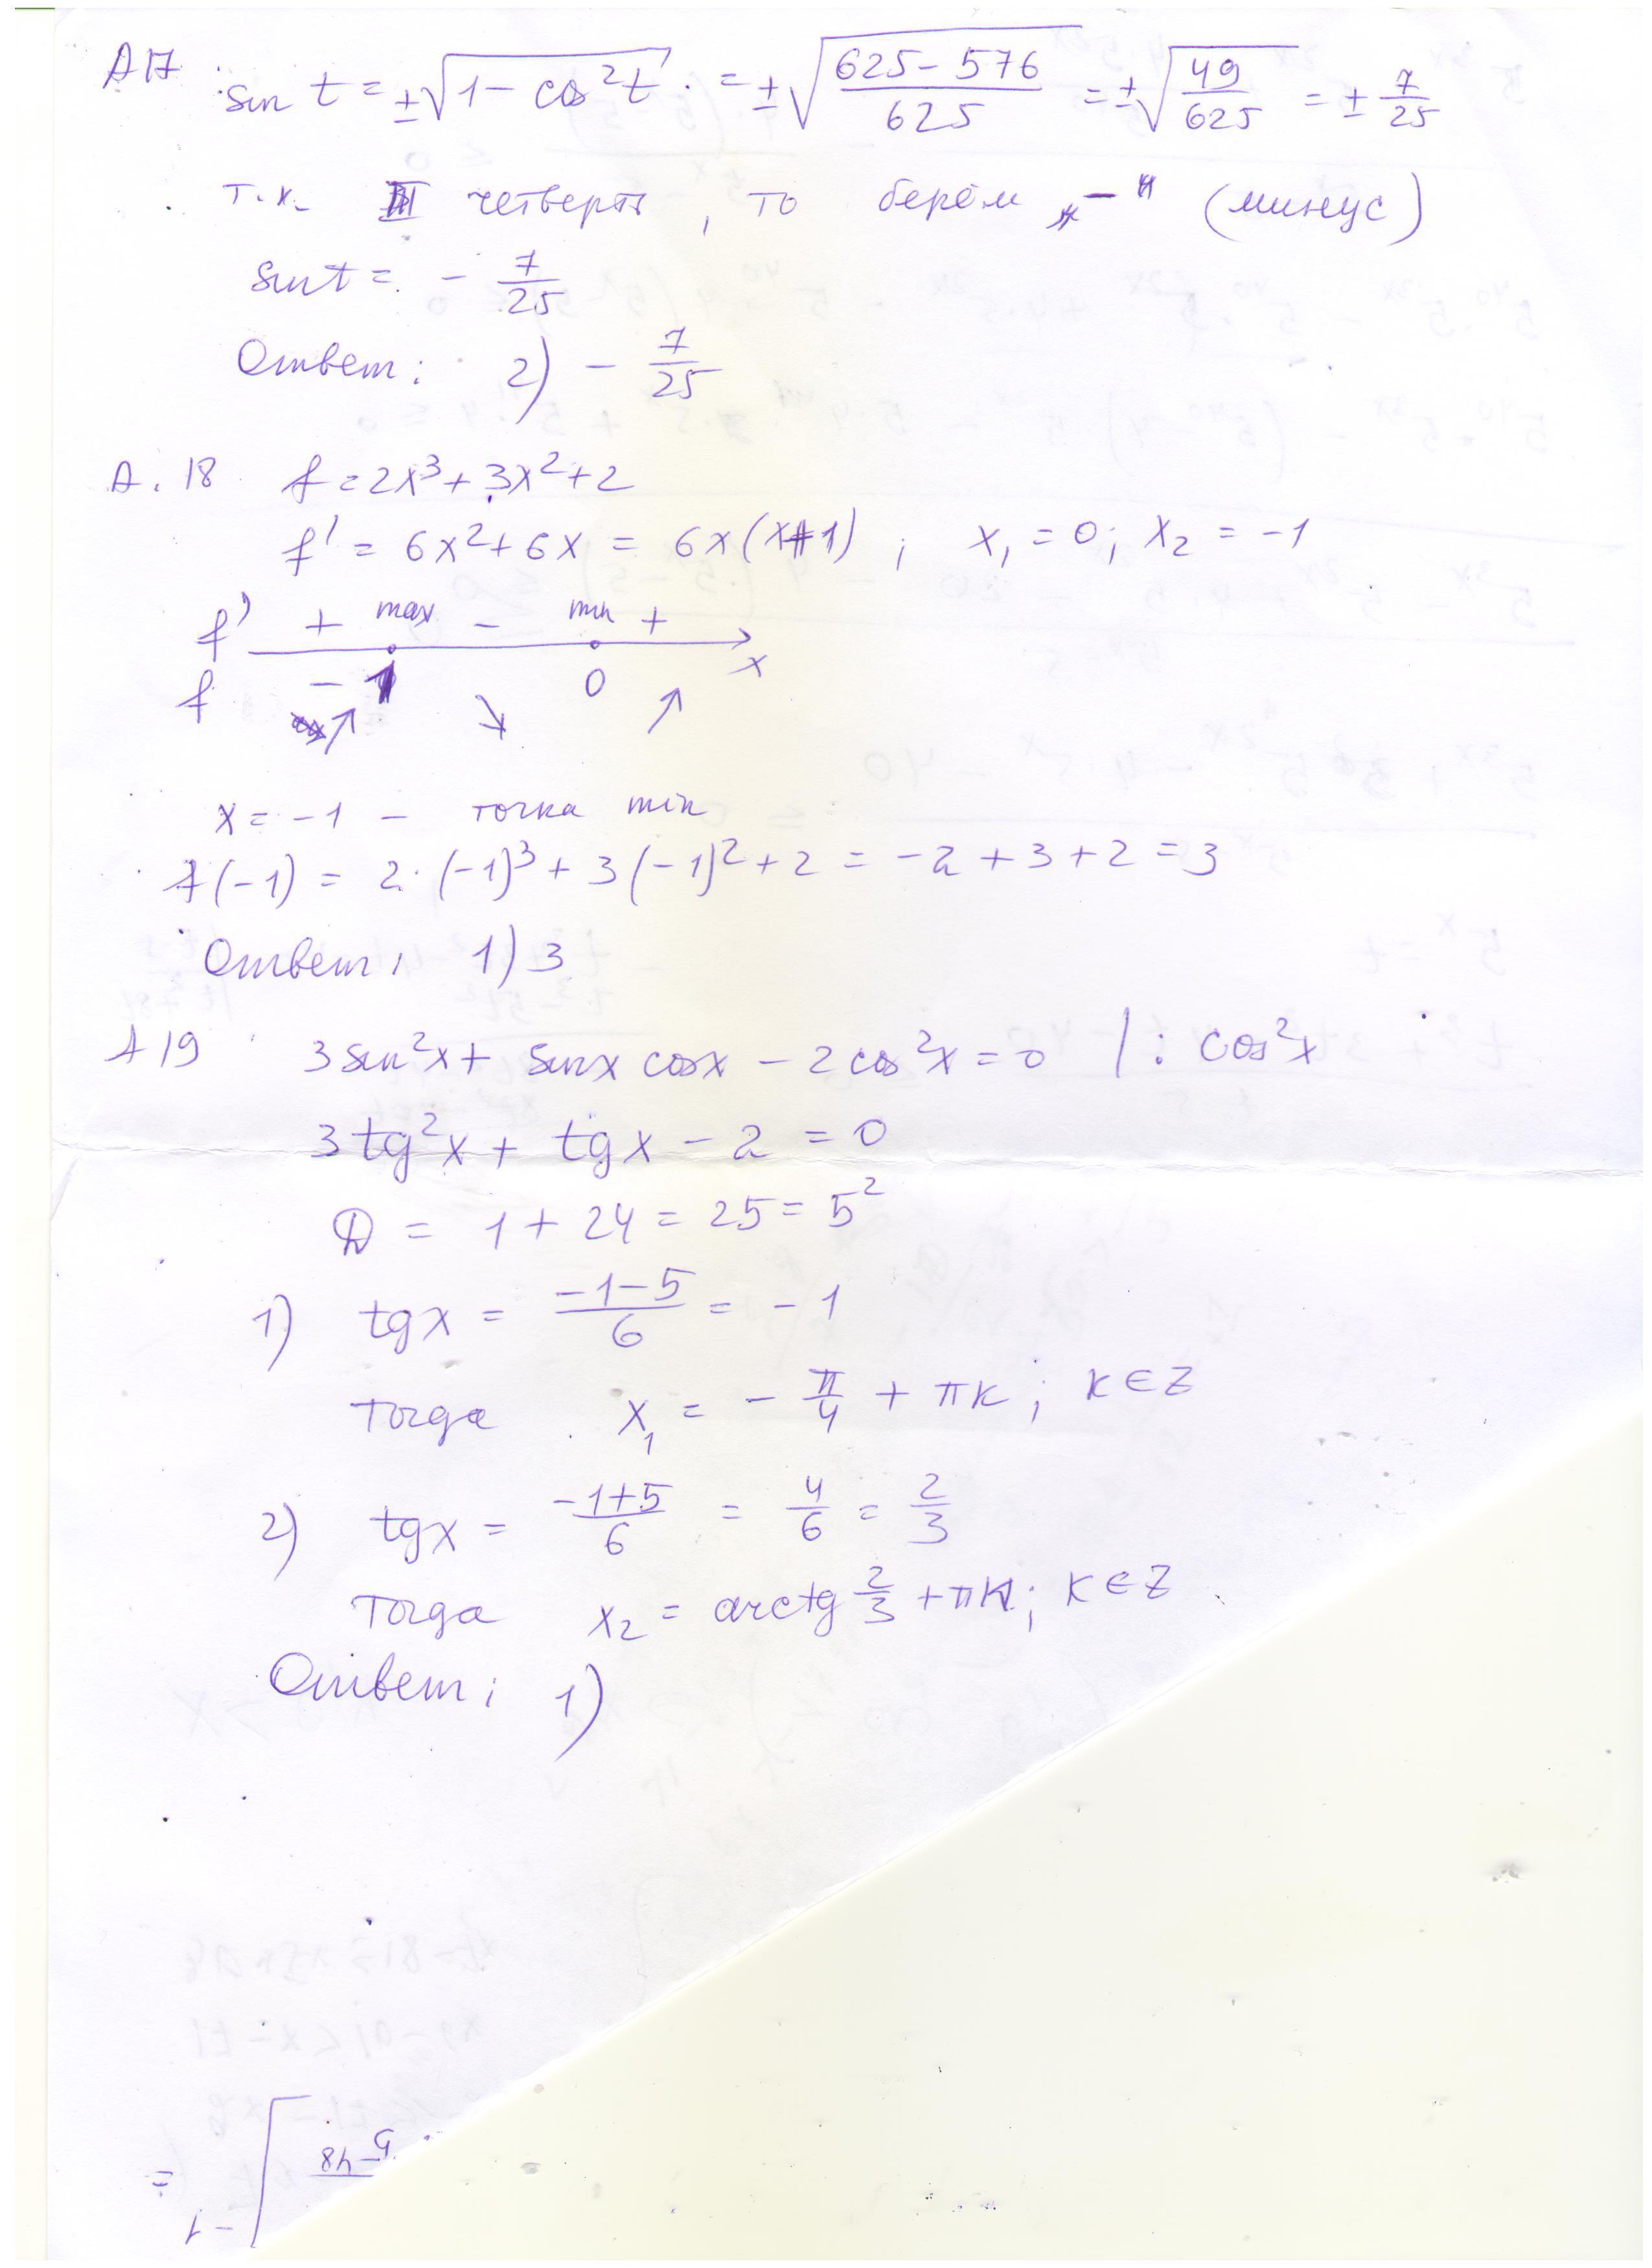 A17 sin t = ±√(1 - cos²t) = ±√((625 - 576)/625) = ±√(49/625) = ± 7/25
т.к. III четверть, то берём „-" (минус)
sin t = - 7/25
Ответ: 2) - 7/25
A.18 f = 2x³ + 3x² + 2
f' = 6x² + 6x = 6x(x+1) ; x₁ = 0; x₂ = -1
f' + max - min +
f -1 ↘ 0 x
↗ ↗
x = -1 - точка min
f(-1) = 2·(-1)³ + 3(-1)² + 2 = -2 + 3 + 2 = 3
Ответ: 1) 3
A19 3 sin²x + sin x cos x - 2 cos²x = 0 / : cos²x
3 tg²x + tg x - 2 = 0
D = 1 + 24 = 25 = 5²
1) tg x = (-1-5)/6 = -1
Тогда x₁ = - π/4 + πk; k ∈ Z
2) tg x = (-1+5)/6 = 4/6 = 2/3
Тогда x₂ = arctg 2/3 + πk; k ∈ Z
Ответ: 1)